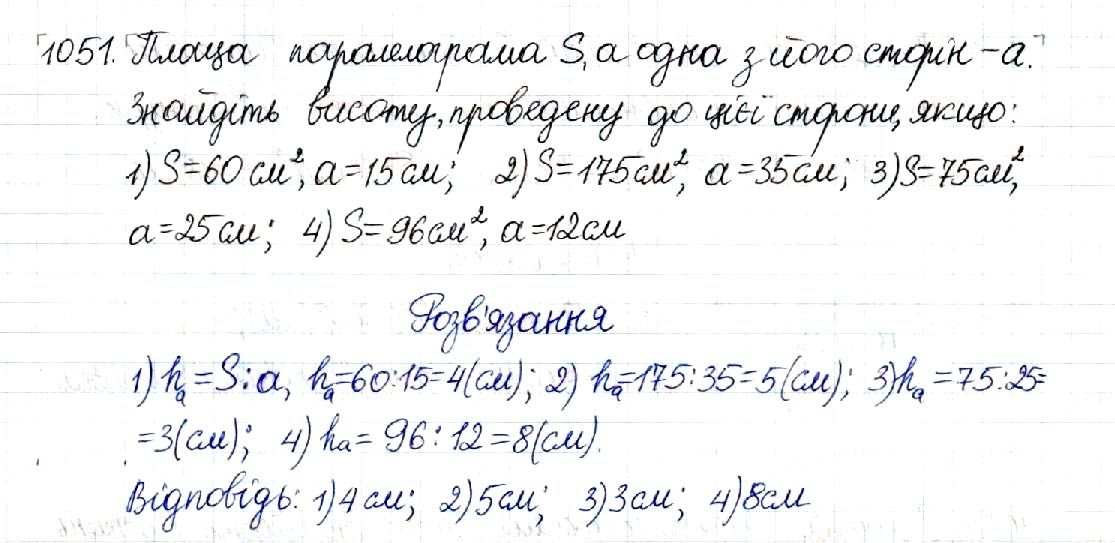 1051. Площа паралелограма S, а одна з його сторін - a.
Знайдіть висоту, проведену до цієї сторони, якщо:
1) S=60 см², a=15см; 2) S=175см², a=35см; 3) S=75см²,
a=25см; 4) S=96см², a=12см
Розв'язання
1) hₐ=S:a, hₐ=60:15=4(см); 2) hₐ=175:35=5(см); 3) hₐ=75:25=
=3(см); 4) hₐ=96:12=8(см).
Відповідь: 1) 4 см; 2) 5см; 3) 3см; 4) 8см